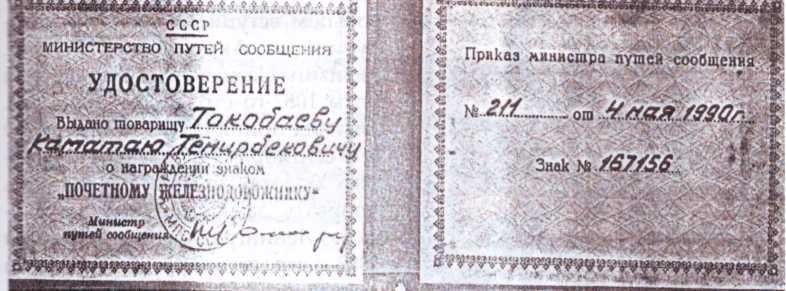 СССР
МИНИСТЕРСТВО ПУТЕЙ СООБЩЕНИЯ
УДОСТОВЕРЕНИЕ
Выдано товарищу Токобаеву
Каматаю Темирбековичу
о награждении знаком
„ПОЧЕТНОМУ ЖЕЛЕЗНОДОРОЖНИКУ“
Министр
путей сообщения
Приказ министра путей сообщения
№ 211 от 4 мая 1990г.
Знак № 167156